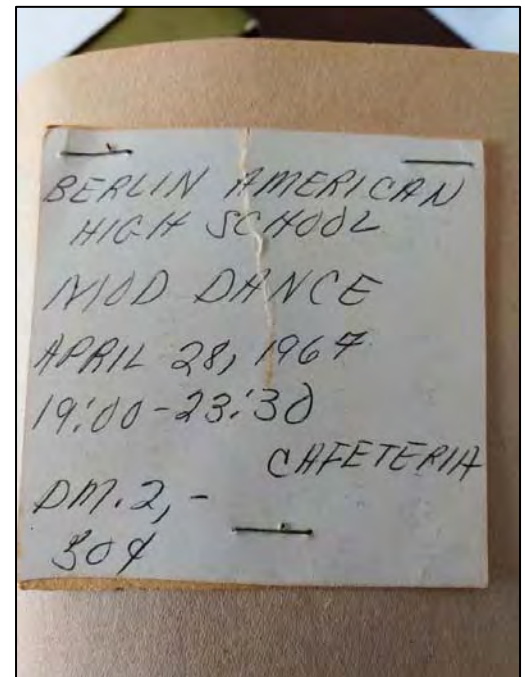 BERLIN AMERICAN
HIGH SCHOOL
MOD DANCE
APRIL 28, 1967
19:00-23:30
CAFETERIA
DM.2,-
50¢